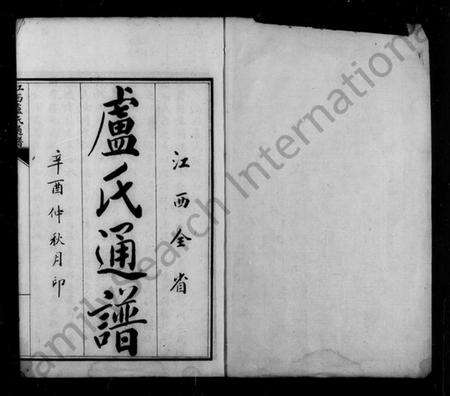 江西全省
盧氏通譜
辛酉仲秋月印
FamilySearch International